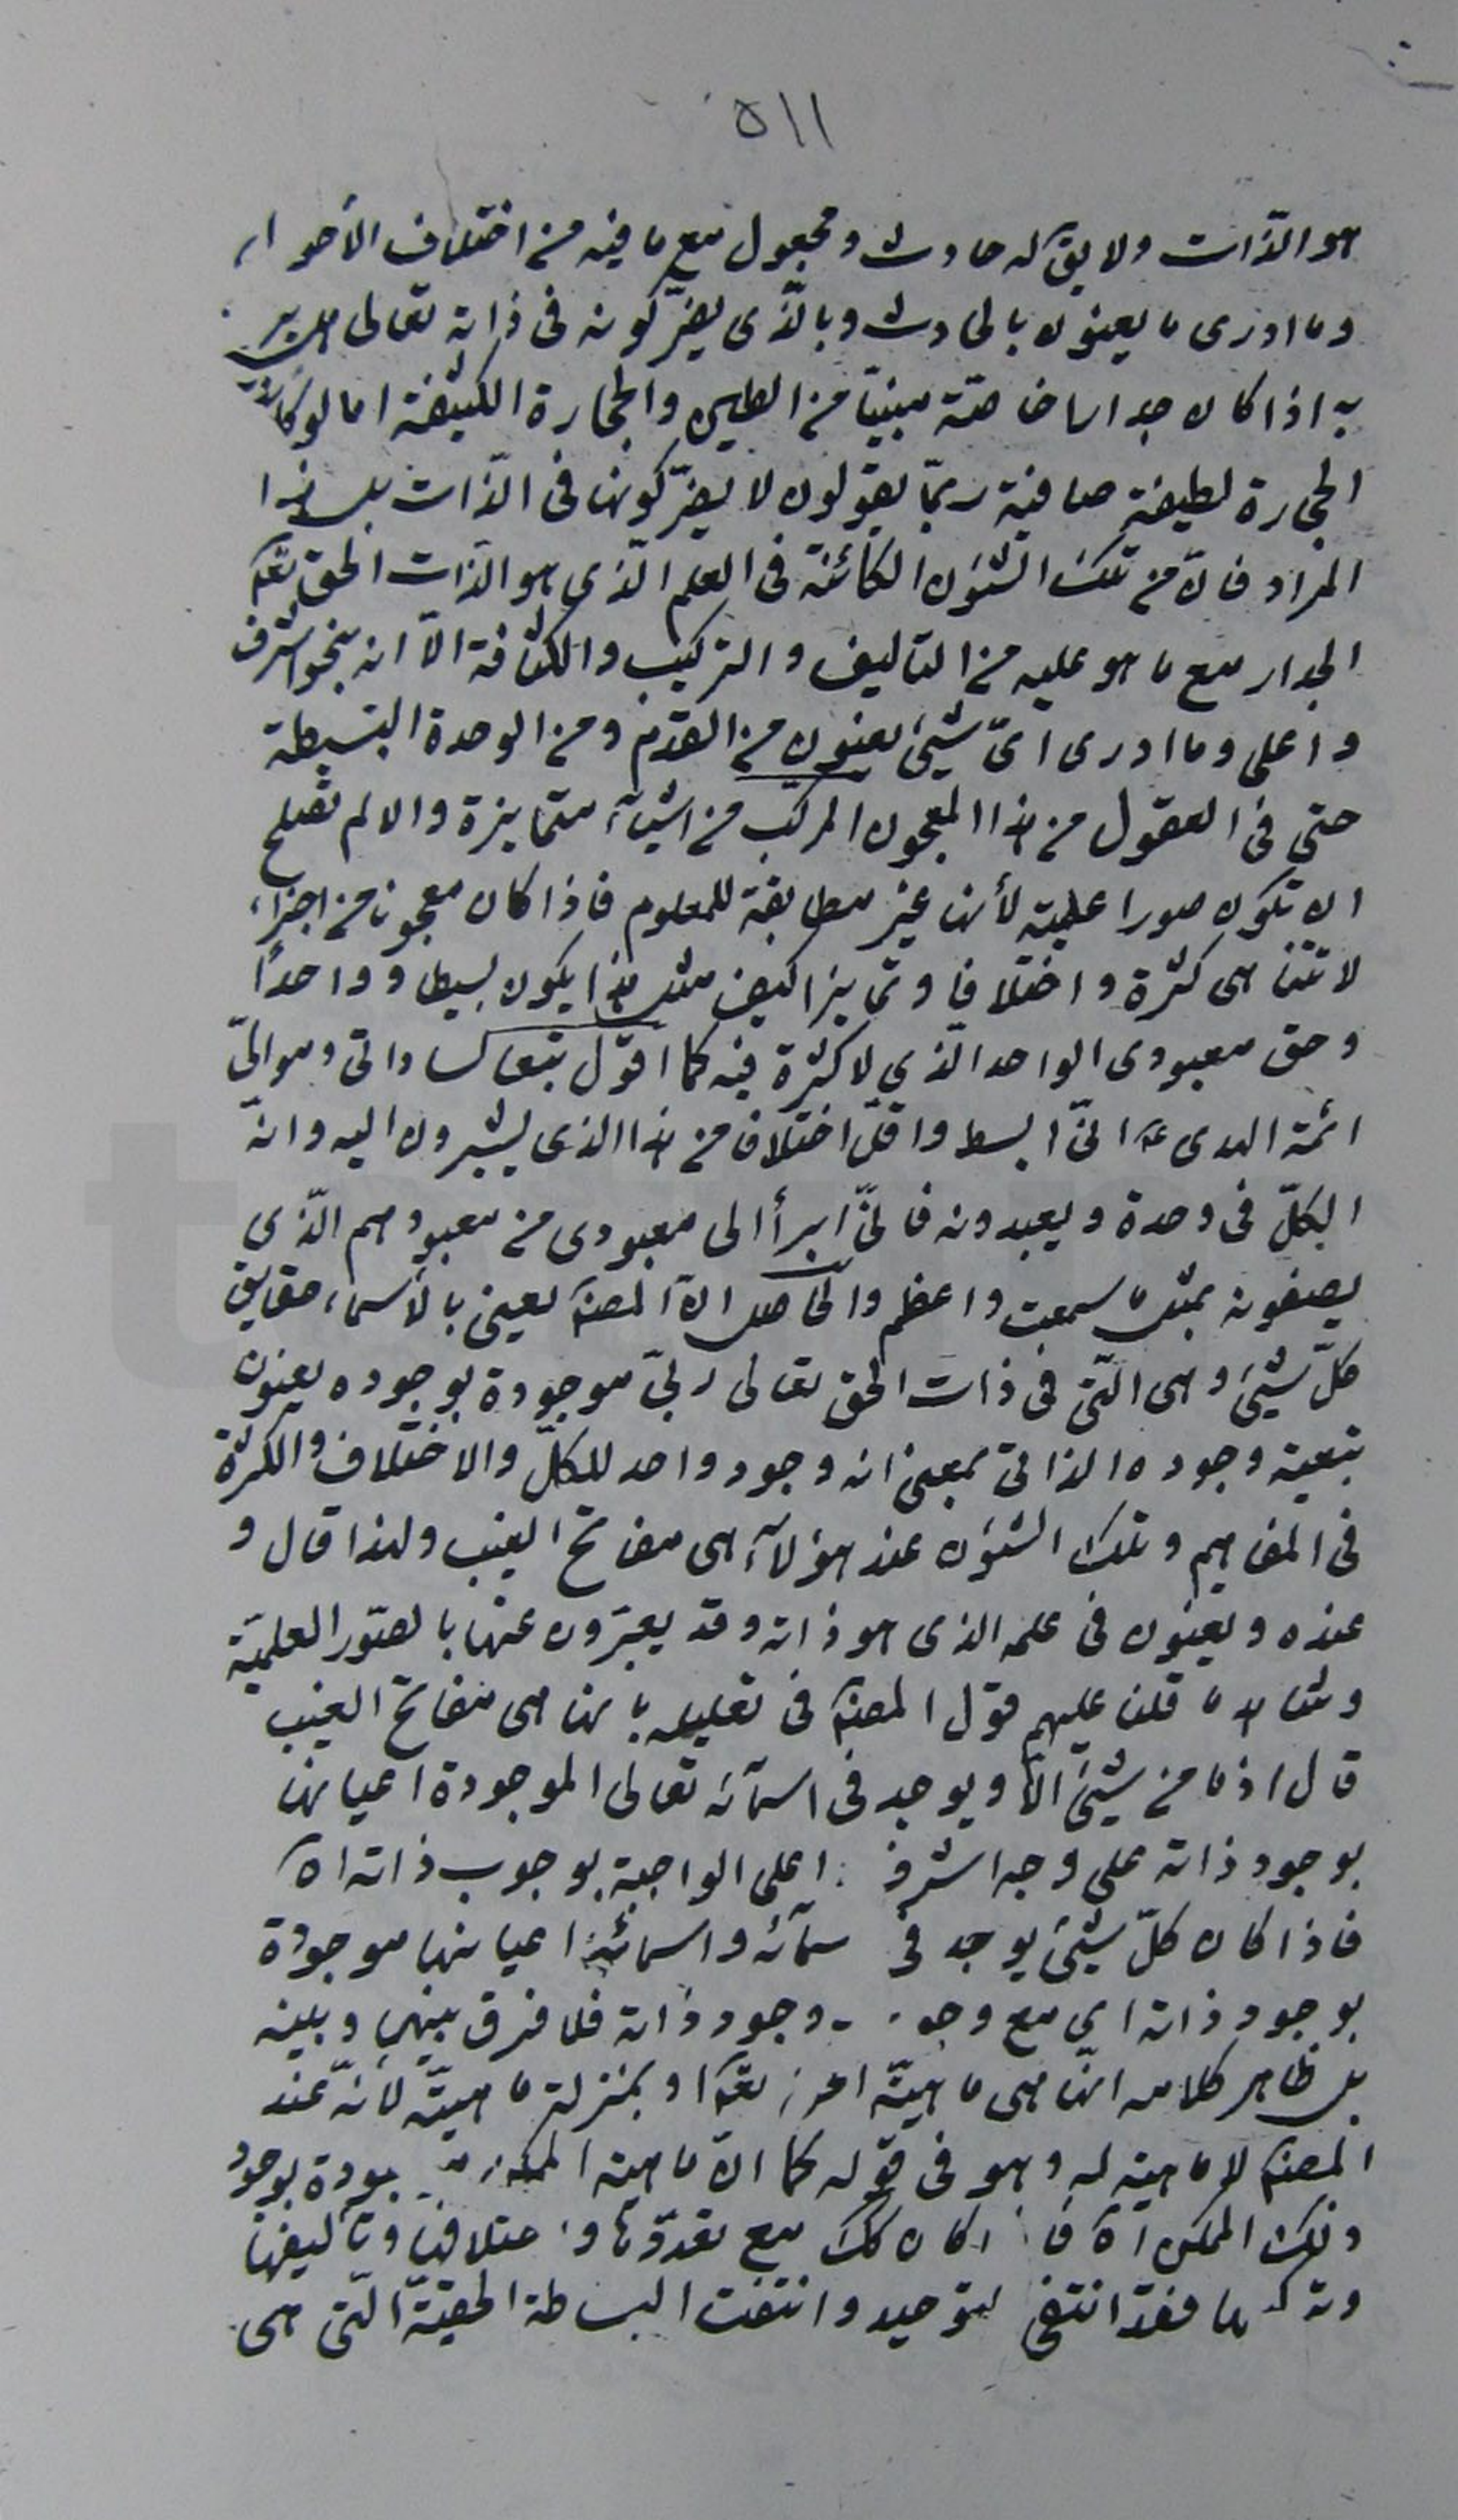 ٥١١
هو الذّات ولا يق له حادث ومجعول مع ما فيه من اختلاف الأحوال
وما ادرى ما يعنون بالحادث وبالّذى يضرّ كونه فى ذاته تعالى هل يريد
به اذا كان جدارا خاصّة مبنيّا من الطين والحجارة الكثيفة اما لو كانت
الحجارة لطيفة صافية ربّما يقولون لا يضرّ كونها فى الذّات بل هذا
المراد فانّ من تلك الشئون الكائنة فى العلم الّذى هو الذّات الحق تعم
الجدار مع ما هو عليه من التاليف والتركيب والكثافة الّا انه بنحو اشرف
واعلى وما ادرى اىّ شيئ يعنون من القدم ومن الوحدة البسيطة
حتى فى العقول من هذا المعجون المركّب من اشيآء متمايزة والا لم تصلح
ان تكون صورا علمية لأنها غير مطابقة للمعلوم فاذا كان معجونا من اجزاء
لا تتناهى كثرة واختلافا وتمايزا كيف مثل هذا يكون بسيطا وواحدًا
وحق معبودى الواحد الّذى لا كثرة فيه كما اقول تبعا لساداتى وموالىّ
ائمة الهدى ع انّى ابسط واقلّ اختلافا من هذا الذى يشيرون اليه وانّه
الكلّ فى وحدة ويعبدونه فانّى ابرأ الى معبودى من معبودهم الّذى
يصفونه بمثل ما سمعت واعظم والحاصل انّ المصنف يعنى بالأسماء حقايق
كلّ شيئ وهى الّتى فى ذات الحق تعالى ربى موجودة بوجوده يعنون
بتبعية وجوده الذاتى بمعنى انه وجود واحد للكلّ والاختلاف والكثرة
فى المفاهيم وتلك الشئون عند هؤلآء هى مفاتح الغيب ولهذا قال و
عنده ويعنون فى علمه الذى هو ذاته وقد يعبّرون عنها بالصّور العلميّة
وشاهد ما قلنا عليهم قول المصنف فى تعليله بانها هى مفاتح الغيب
قال اذ ما من شيئ الّا ويوجد فى اسمآئه تعالى الموجودة اعيانها
بوجود ذاته على وجه اشرف اعلى الواجبة بوجوب ذاته اه
فاذا كان كلّ شيئ يوجد فى سمآئه واسمائه اعيانها موجودة
بوجود ذاته اى مع وجو وجود ذاته فلا فرق بينها وبينه
بل ظاهر كلامه انّها هى ماهيّة تعم او بمنزلة ماهيّة لأنّه عند
المصنف لا ماهية له وهو فى قوله كما انّ ماهية الممكن جودة بوجود
ذلك الممكن اه فا ا كان كك مع تعدّدها واختلافها وتأليفها
وتركبها فقد انتفى لتوحيد وانتفت البساطة الحقيّة الّتى هى